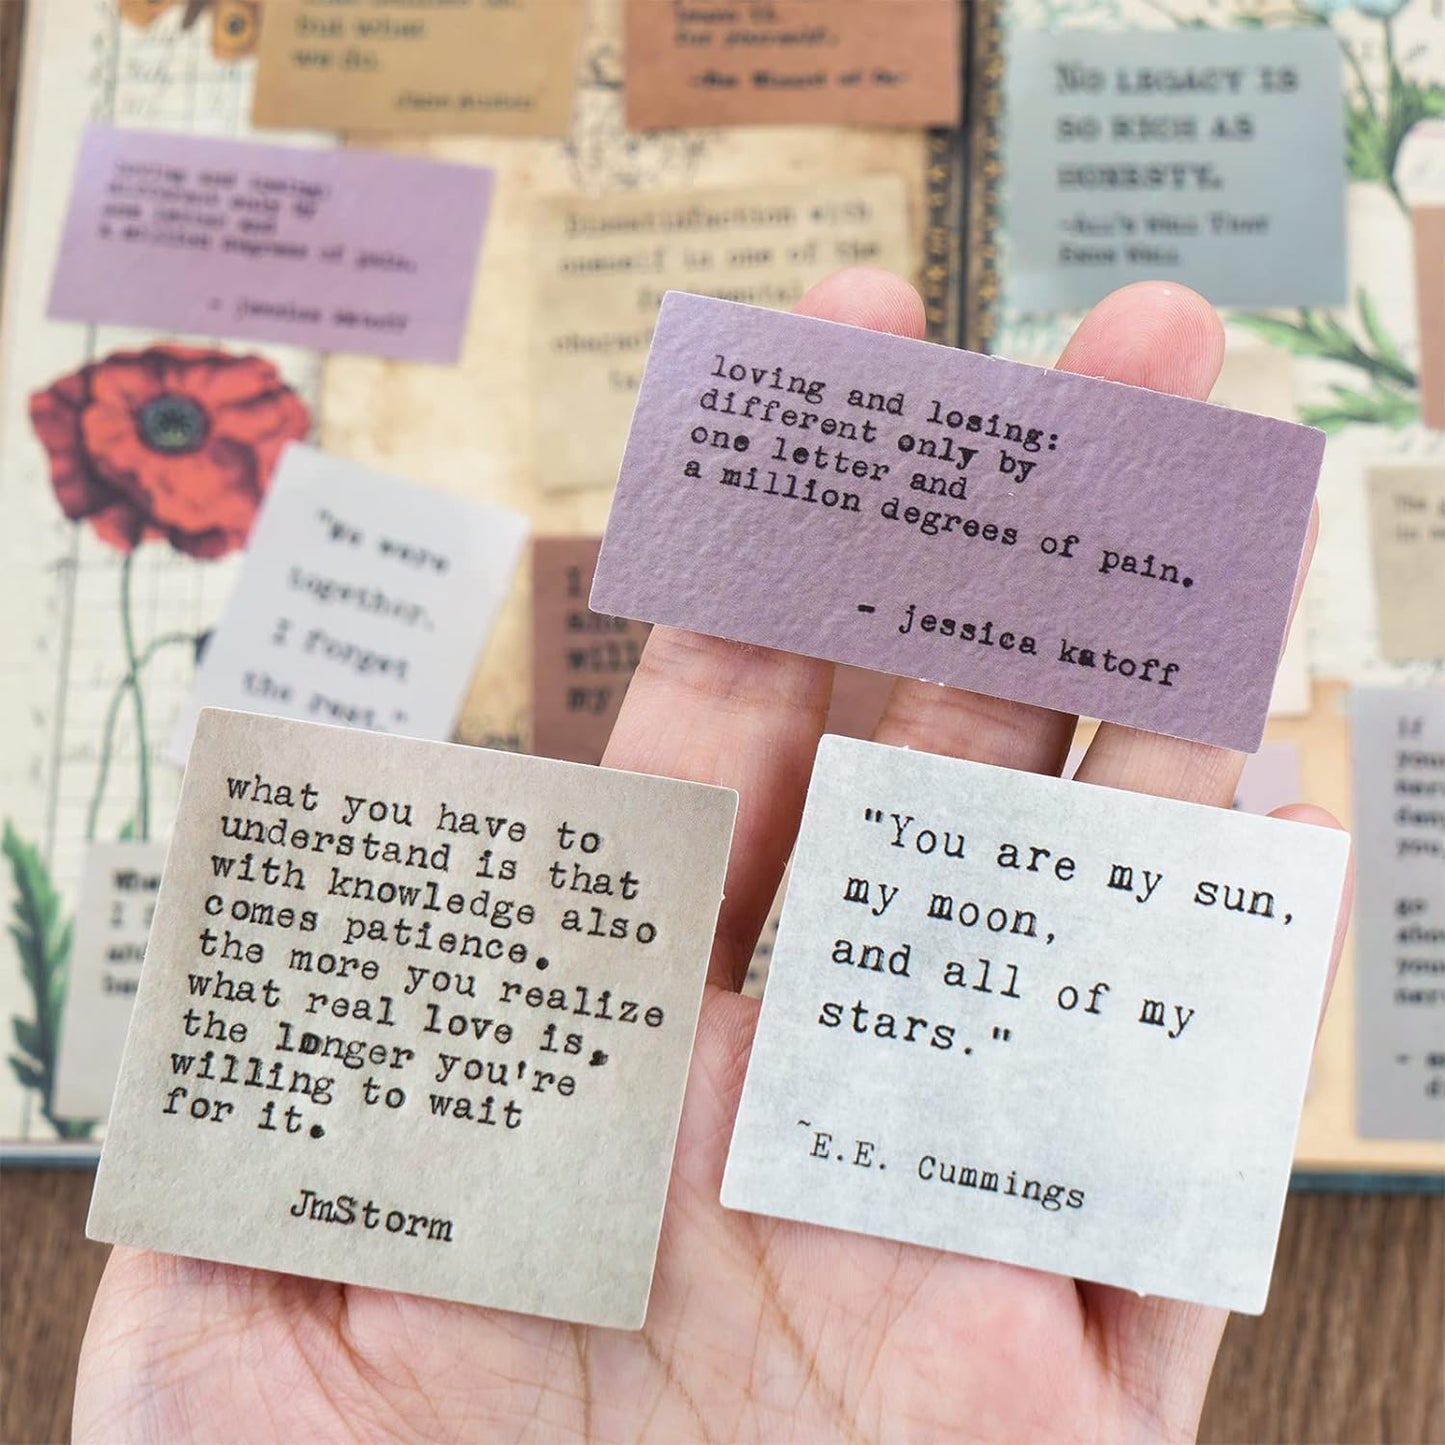 but what
we do.
Jane Austen
for yourself.
NO LEGACY IS
SO RICH AS
HONESTY.
~ALL'S WELL THAT
ENDS WELL
loving and losing:
different only by
one letter and
a million degrees of pain.
- jessica katoff
Dissatisfaction with
oneself is one of the
"We were
together.
I forget
the rest."
loving and losing:
different only by
one letter and
a million degrees of pain.
- jessica katoff
what you have to
understand is that
with knowledge also
comes patience.
the more you realize
what real love is,
the longer you're
willing to wait
for it.
JmStorm
"You are my sun,
my moon,
and all of my
stars."
~E.E. Cummings